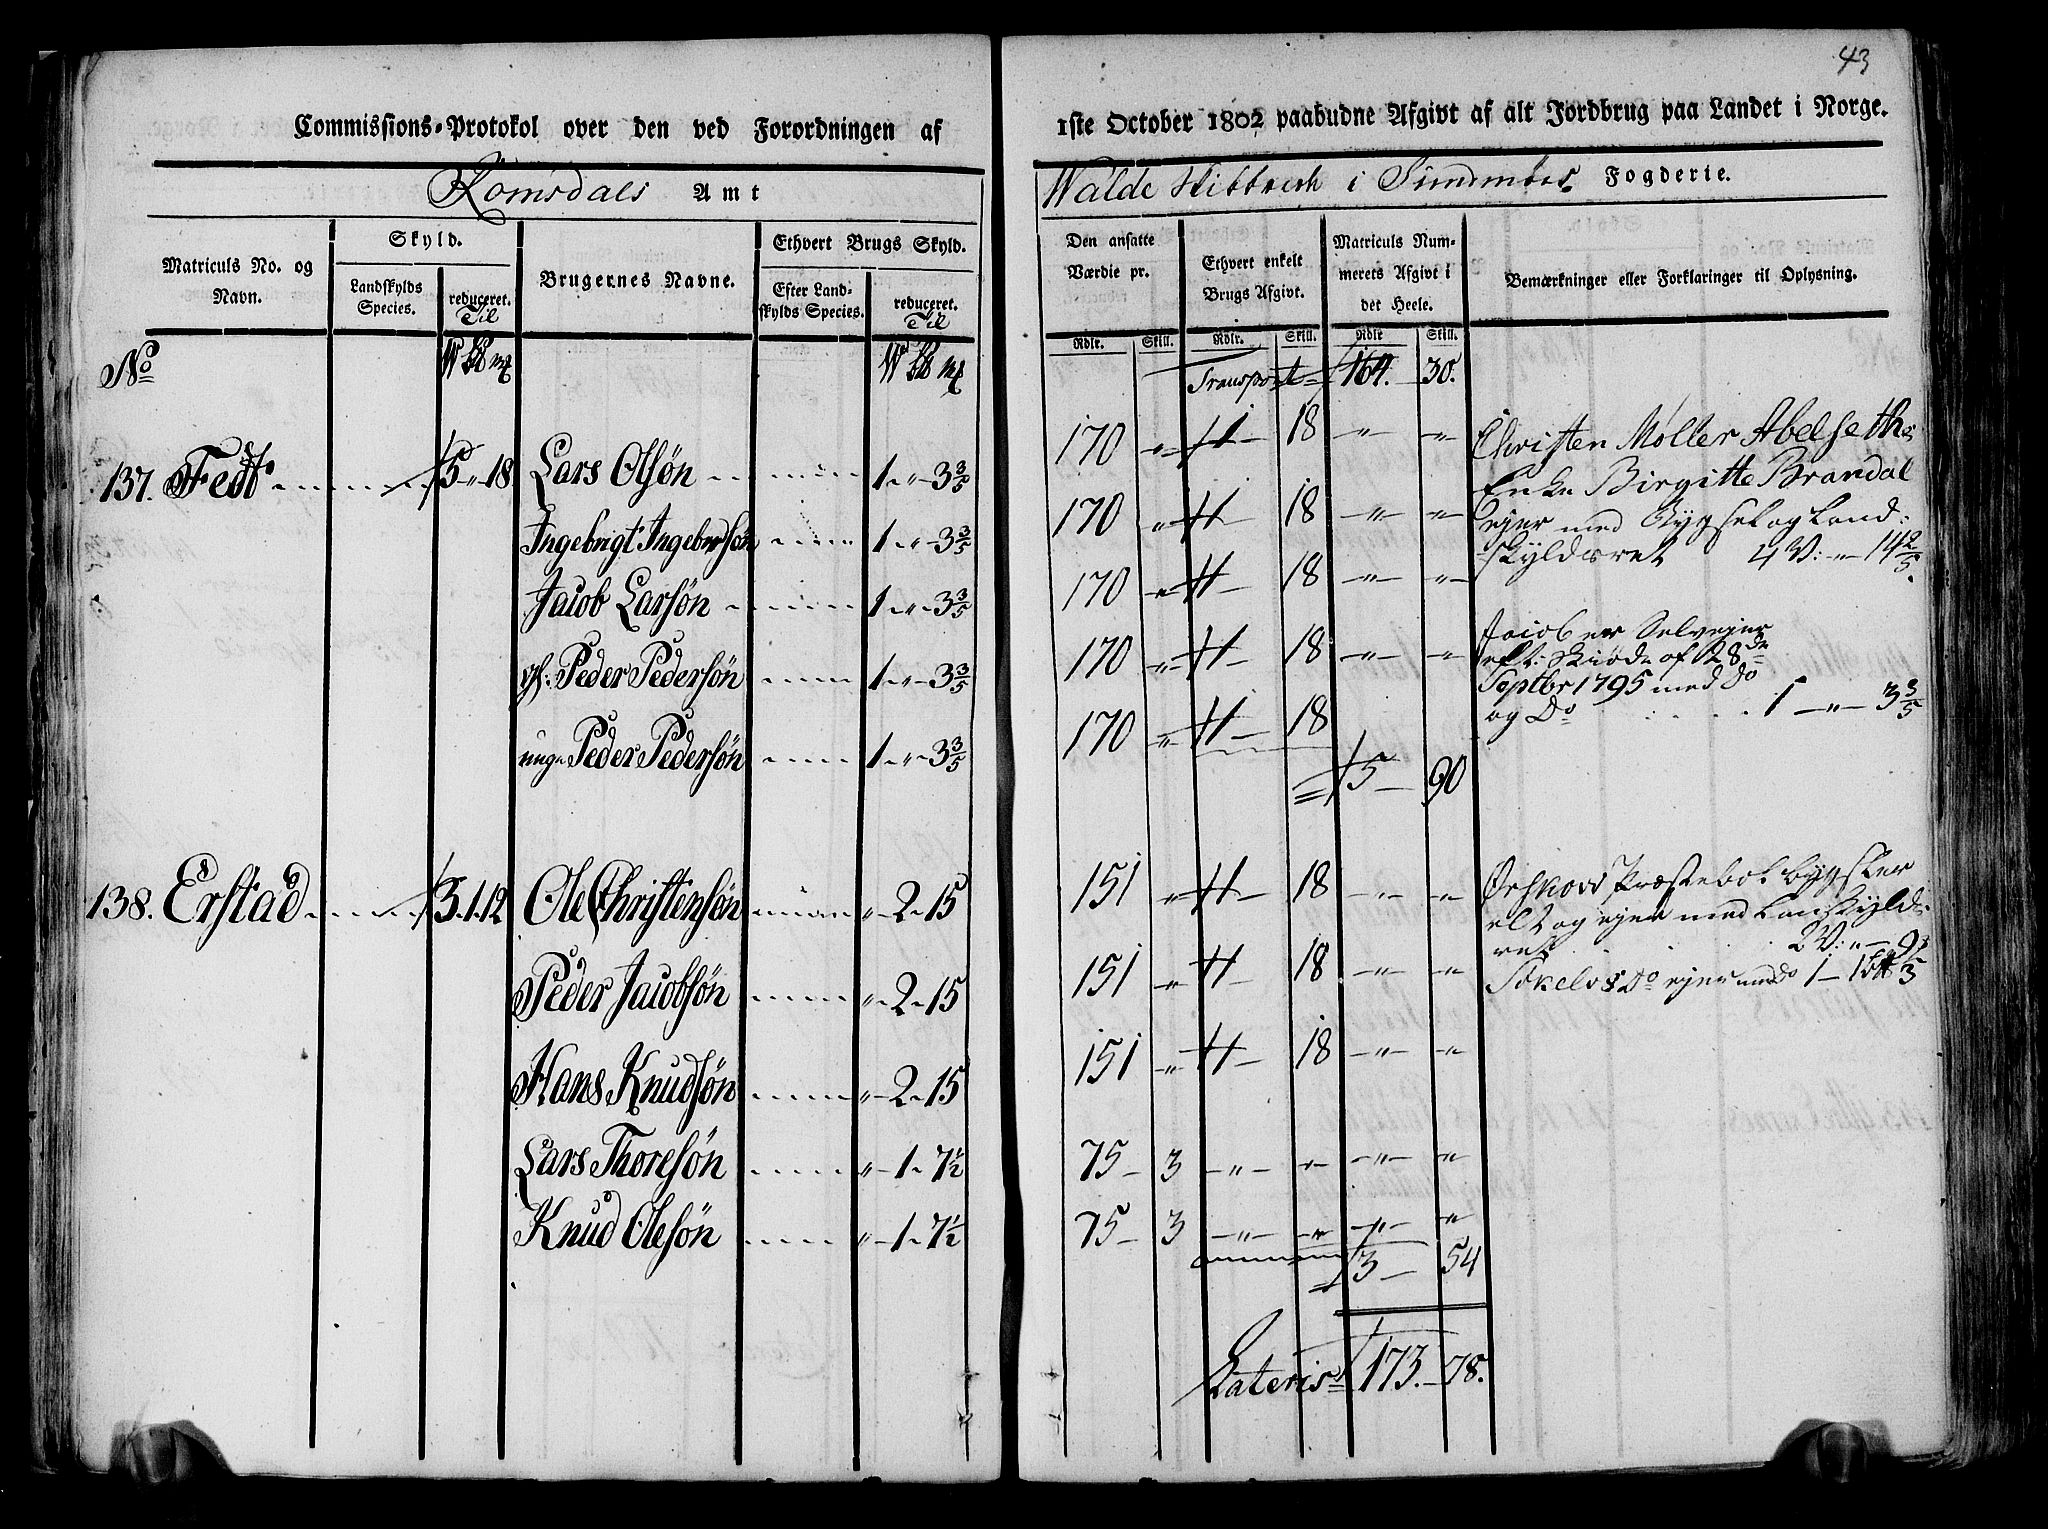 43
Commissions-Protokol over den ved Forordningen af 1ste October 1802 paabudne Afgivt af alt Jordbrug paa Landet i Norge.
Romsdals Amt
Walde Skibbrede i Sundmøers Fogderie.
Matriculs No. og Navn.
Skyld.
Landskylds Species.
reduceret. Til
Brugernes Navne.
Ethvert Brugs Skyld.
Efter Landskylds Species.
reduceret. Til
Den ansatte Værdie pr.
Ethvert enkelt Brugs Afgivt.
Matriculs Nummerets Afgivt i det Heele.
Bemærkninger eller Forklaringer til Oplysning.
Rdlr. Skill. Rdlr. Skill. Rdlr Skill.
No
Transport 164. 30.
137. Fedt 5 " 18 Lars Olsøn 1 " 3 3/5 170 " 1 18 " "
Ingebrigt Ingebrigtsøn 1 " 3 3/5 170 " 1 18 " "
Jacob Larsøn 1 " 3 3/5 170 " 1 18 " "
gl: Peder Pedersøn 1 " 3 3/5 170 " 1 18 " "
unge Peder Pedersøn 1 " 3 3/5 170 " 1 18
5 90
Christen Møller Abelseths
Enke Birgitte Brandal
ejer med Bygsel og Land-
skyldsret 4 V: " 14 2/5.
Jacob er Selvejer
eft: Skiøde af 28de
Septbr 1795 med Do
og Do 1 " 3 3/5
138. Erstad 3. 1. 12 Ole Christensøn " 2 15 151 " 1 18 " "
Peder Jacobsøn " 2 15 151 " 1 18 " "
Hans Knudsøn " 2 15 151 " 1 18 " "
Lars Thoresøn " 1 7 1/2 75 3 " " " "
Knud Olesøn " 1 7 1/2 75 3 " " " "
3 54
Ørskovs Præstebol bygsler
alt og ejer med Lanskylds-
ret 2 V: "
Do ejer med Do 1
Lateris 173. 78.